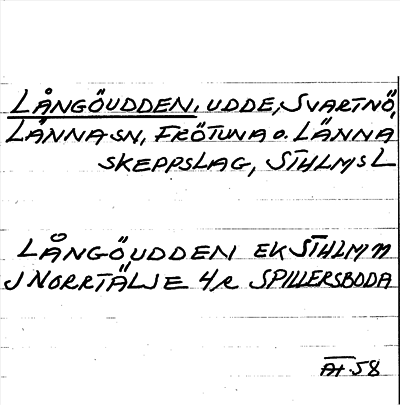 LÅNGÖUDDEN, UDDE, SVARTNÖ,
LÄNNA SN, FRÖTUNA O. LÄNNA
SKEPPSLAG, STHLMS L
LÅNGÖUDDEN EK STHLM N
J NORRTÄLJE 4 R SPILLERSBODA
AT. 58